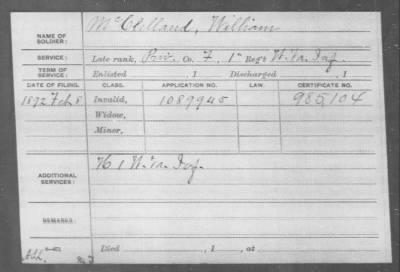 NAME OF SOLDIER: McClelland, William
SERVICE: Late rank, Priv. Co. F, 1st Reg't W.Va. Inf.
TERM OF SERVICE: Enlisted , 1 Discharged , 1
DATE OF FILING. CLASS. APPLICATION NO. LAW. CERTIFICATE NO.
1892 Feb 8 Invalid, 1089945 985104
Widow,
Minor,
ADDITIONAL SERVICES: H 1 W.Va. Inf.
REMARKS:
Died , 1 , at